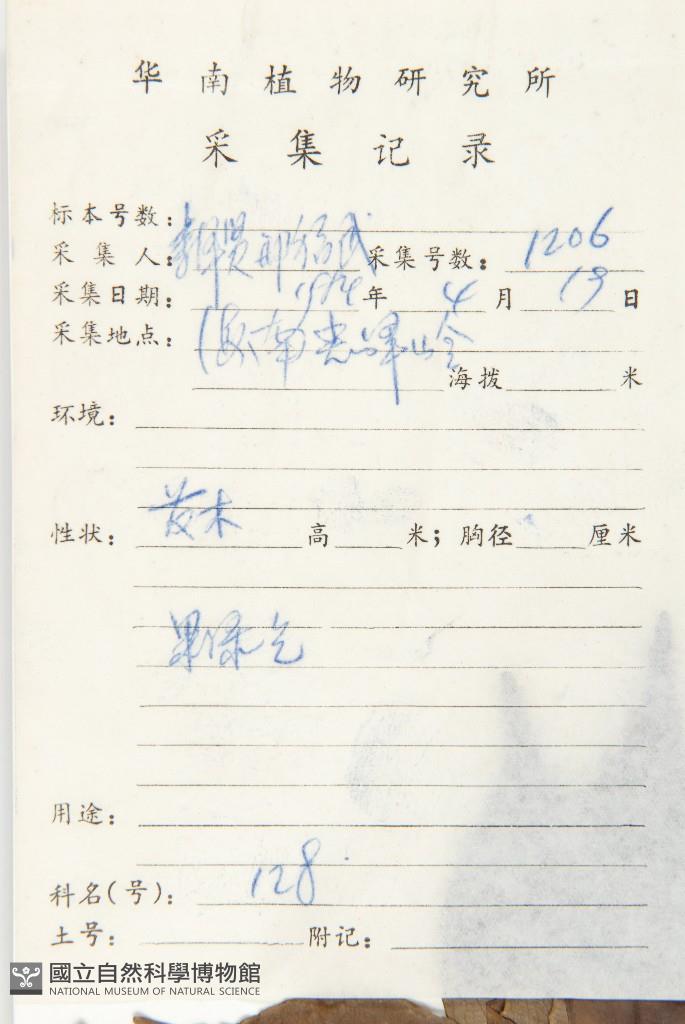 华南植物研究所
采集记录
标本号数:
采集人: 采集号数: 1206
采集日期: 年 4 月 19 日
采集地点: 海南尖峰岭
海拨 米
环境:
性状: 高 米; 胸径 厘米
果绿色
用途:
科名(号): 128
土号: 附记:
國立自然科學博物館
NATIONAL MUSEUM OF NATURAL SCIENCE